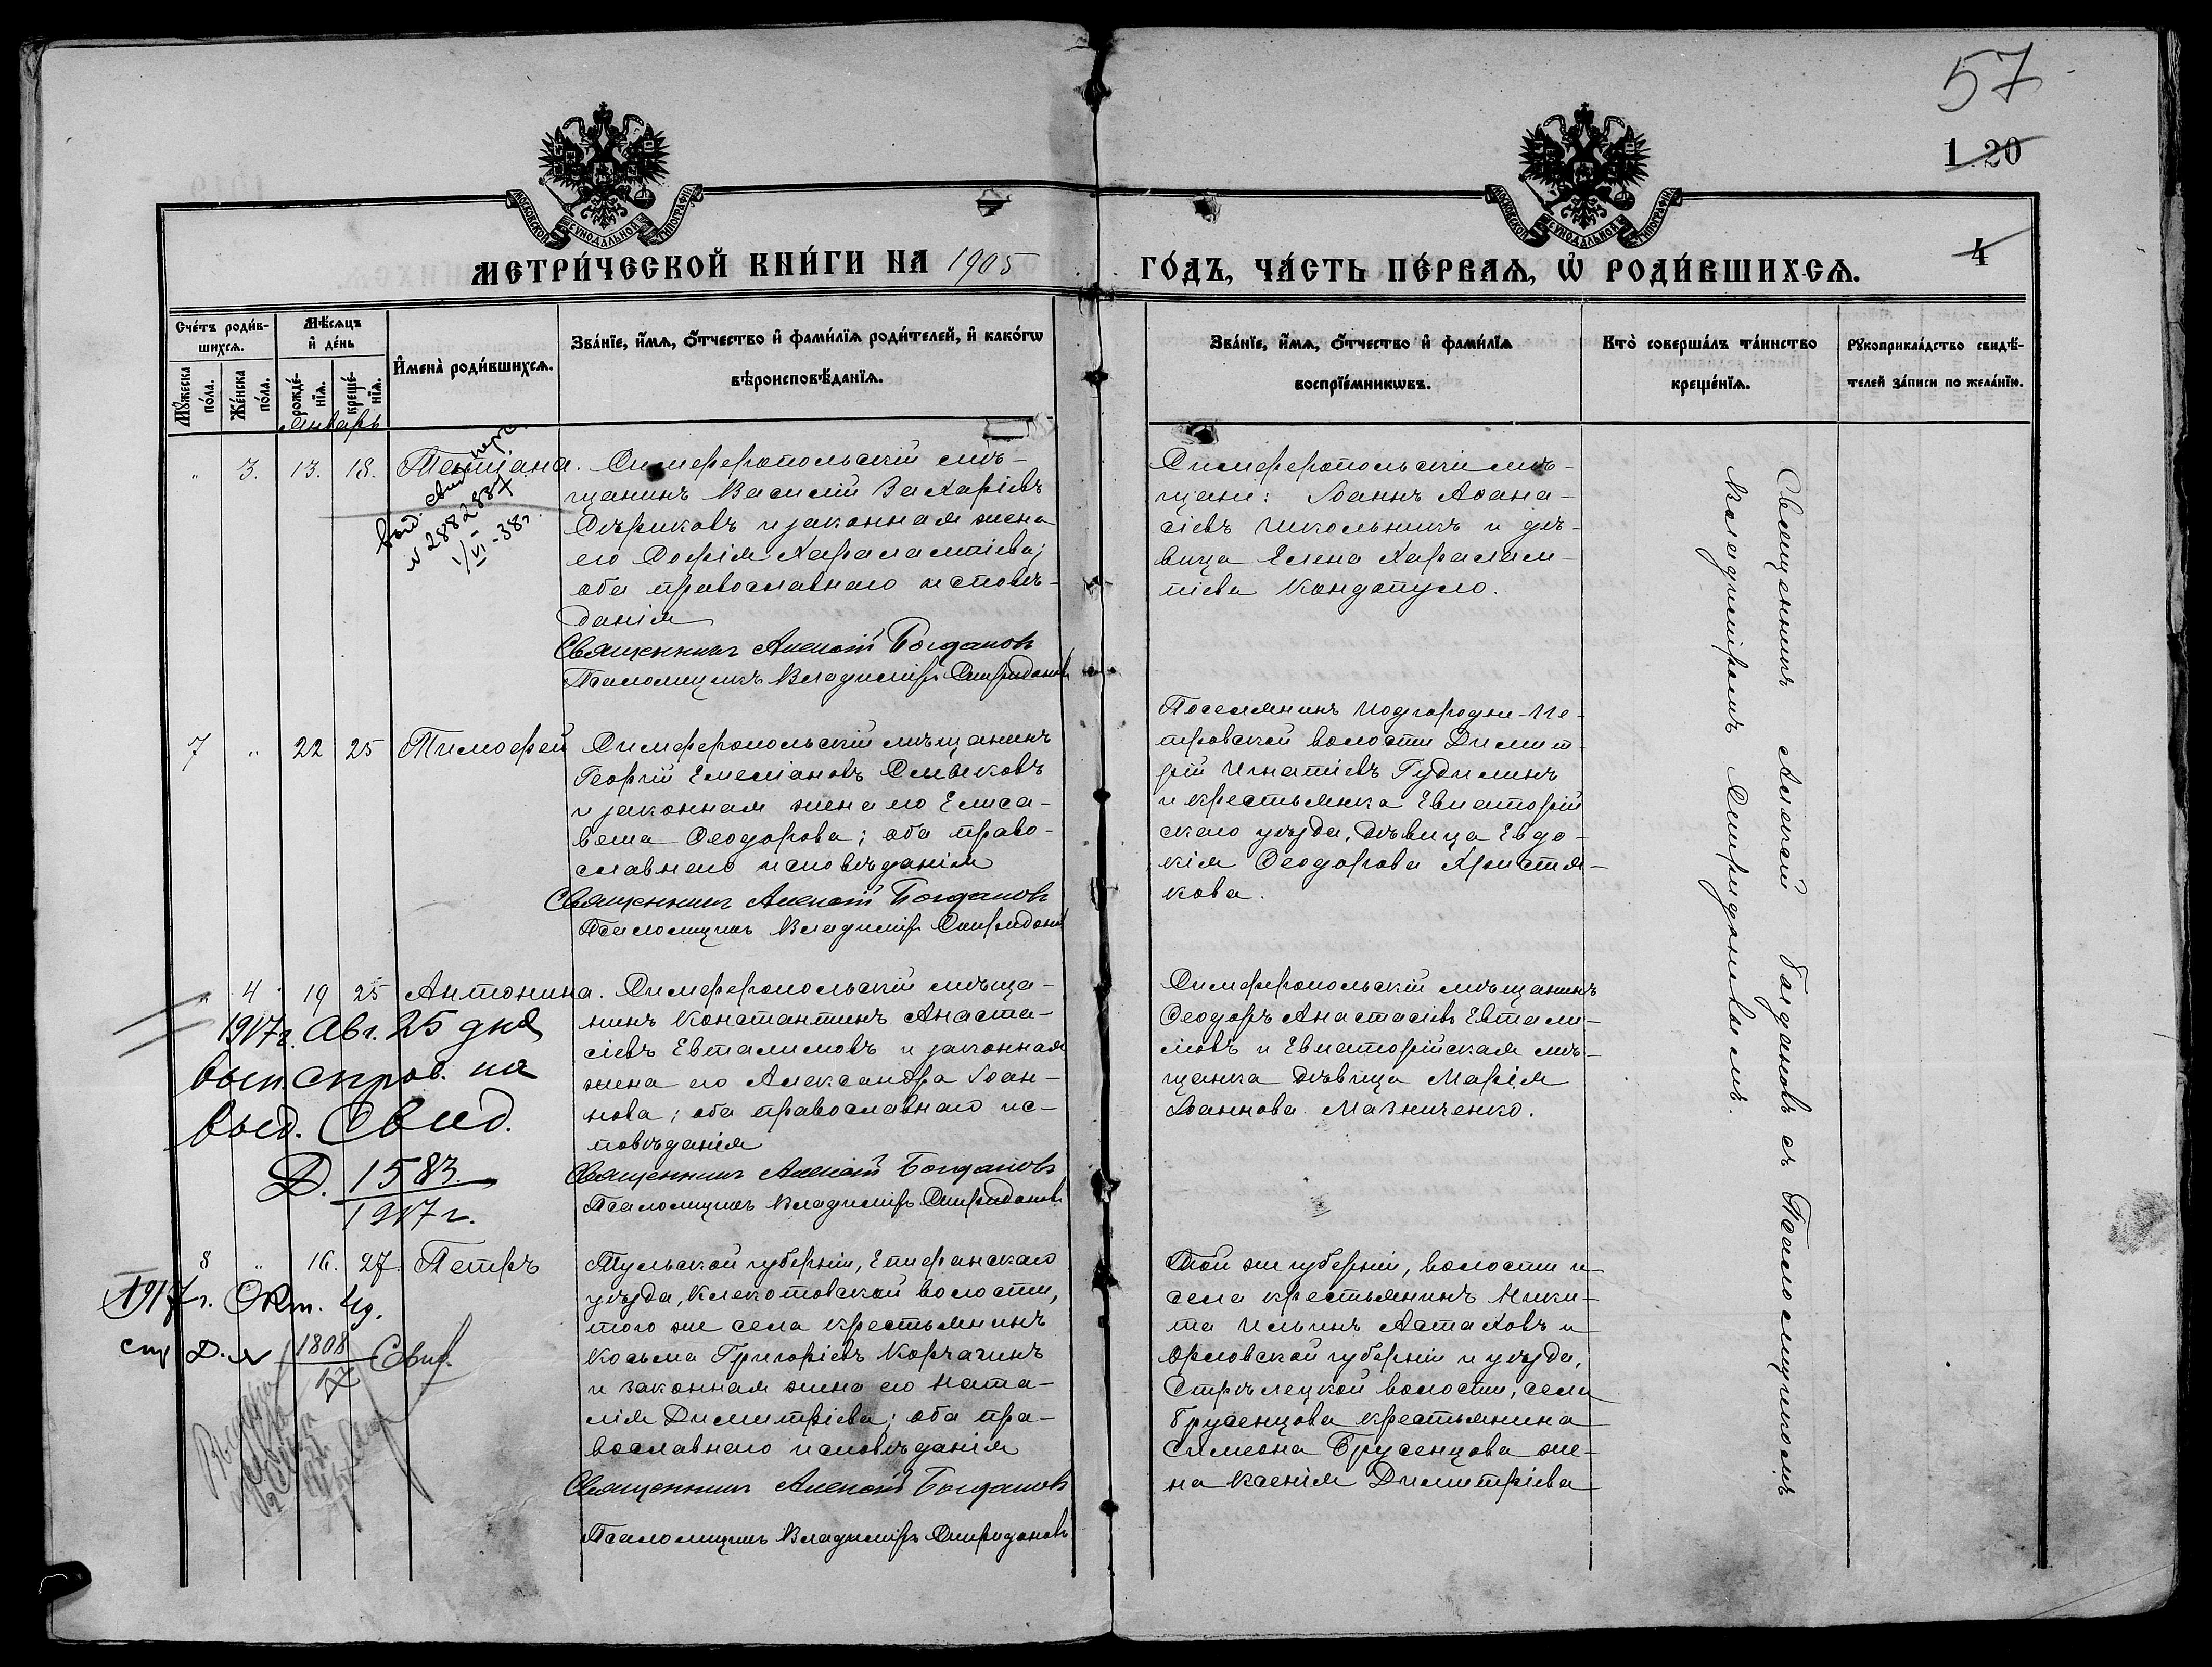 57
1 20
4
МОСКОВСКОЙ СѴНОДАЛЬНОЙ ТИПОГРАФІИ
МОСКОВСКОЙ СѴНОДАЛЬНОЙ ТИПОГРАФІИ
МЕТРИ́ЧЕСКОЙ КНИ́ГИ НА 1905
ГО́ДЪ, ЧА́СТЬ ПЕ́РВАѦ, Ѡ҆ РОДИ́ВШИХСѦ.
Сче́тъ роди́в-
шихсѧ.
Мѣ́сѧцъ
и҆ де́нь
Мꙋ́жеска
по́ла.
Же́нска
по́ла.
рожде́-
нїѧ.
креще́-
нїѧ.
И҆мена̀ роди́вшихсѧ.
Зва́нїе, и҆́мѧ, ѻ҆́тчество и҆ фами́лїѧ роди́телей, и҆ како́гѡ
вѣроисповѣ́данїѧ.
Зва́нїе, и҆́мѧ, ѻ҆́тчество и҆ фами́лїѧ
воспрїе́мникѡвъ.
Кто̀ соверша́лъ та́инство
креще́нїѧ.
Рꙋкоприкла́дство свидѣ́-
телей за́писи по жела́нїю.
Январь
" 3. 13. 18. Татіана.
выд. свид.
№ 2882887
1/VI-38г.
Симферопольскій мѣ-
щанинъ Василій Захаріевъ
Сѣриковъ и законная жена
его Софія Харалампіева;
оба православнаго исповѣ-
данія
Священникъ Алексій Богдановъ
Псаломщикъ Владиміръ Спиридоновъ
Симферопольскіе мѣ-
щане: Іоаннъ Аѳана-
сіевъ Школьникъ и дѣ-
вица Елена Харалам-
піева Кондопуло.
7 " 22 25 Тимофей
Симферопольскій мѣщанинъ
Георгій Емеліановъ
и законная жена его Елиса-
вета Ѳеодорова; оба право-
славнаго исповѣданія
Священникъ Алексій Богдановъ
Псаломщикъ Владиміръ Спиридоновъ
Поселянинъ Подгородне-Пе-
тровской волости Димит-
рій Игнатіевъ Гудилинъ
и крестьянка Евпаторій
скаго уѣзда, дѣвица Евдо-
кія Ѳеодорова Христя-
кова.
" 4 19 25 Антонина.
1917г. Авг. 25 дня
вып. справ. на
выд. Свид.
Д. 1583
1917 г.
Симферопольскій мѣща-
нинъ Константинъ Анаста-
сіевъ Евталимовъ и законная
жена его Александра Іоан-
нова; оба православнаго ис-
повѣданія
Священникъ Алексій Богдановъ
Псаломщикъ Владиміръ Спиридоновъ
Симферопольскій мѣщанинъ
Ѳеодоръ Анастасіевъ Евтали-
мовъ и Евпаторійская мѣ-
щанка дѣвица Марія
Іоаннова Мазниченко.
8 " 16. 27. Петръ
1917г. Окт. 4д.
Д. № 1808
IX
Свид.
Тульской губерніи, Епифанскаго
уѣзда, Клекотовской волости,
того же села крестьянинъ
Косьма Григоріевъ Корчагинъ
и законная жена его Ната-
лія Димитріева; оба пра-
вославнаго исповѣданія
Священникъ Алексій Богдановъ
Псаломщикъ Владиміръ Спиридоновъ
Той же губерніи, волости и
села крестьянинъ Ники-
та Ильинъ Астаховъ и
Орловской губерніи и уѣзда,
Стрѣлецкой волости, села
Брусенцова крестьянина
Симеона Брусенцова же-
на Ксенія Димитріева
Священникъ Алексій Богдановъ съ Псаломщикомъ
Владиміромъ Спиридоновымъ.